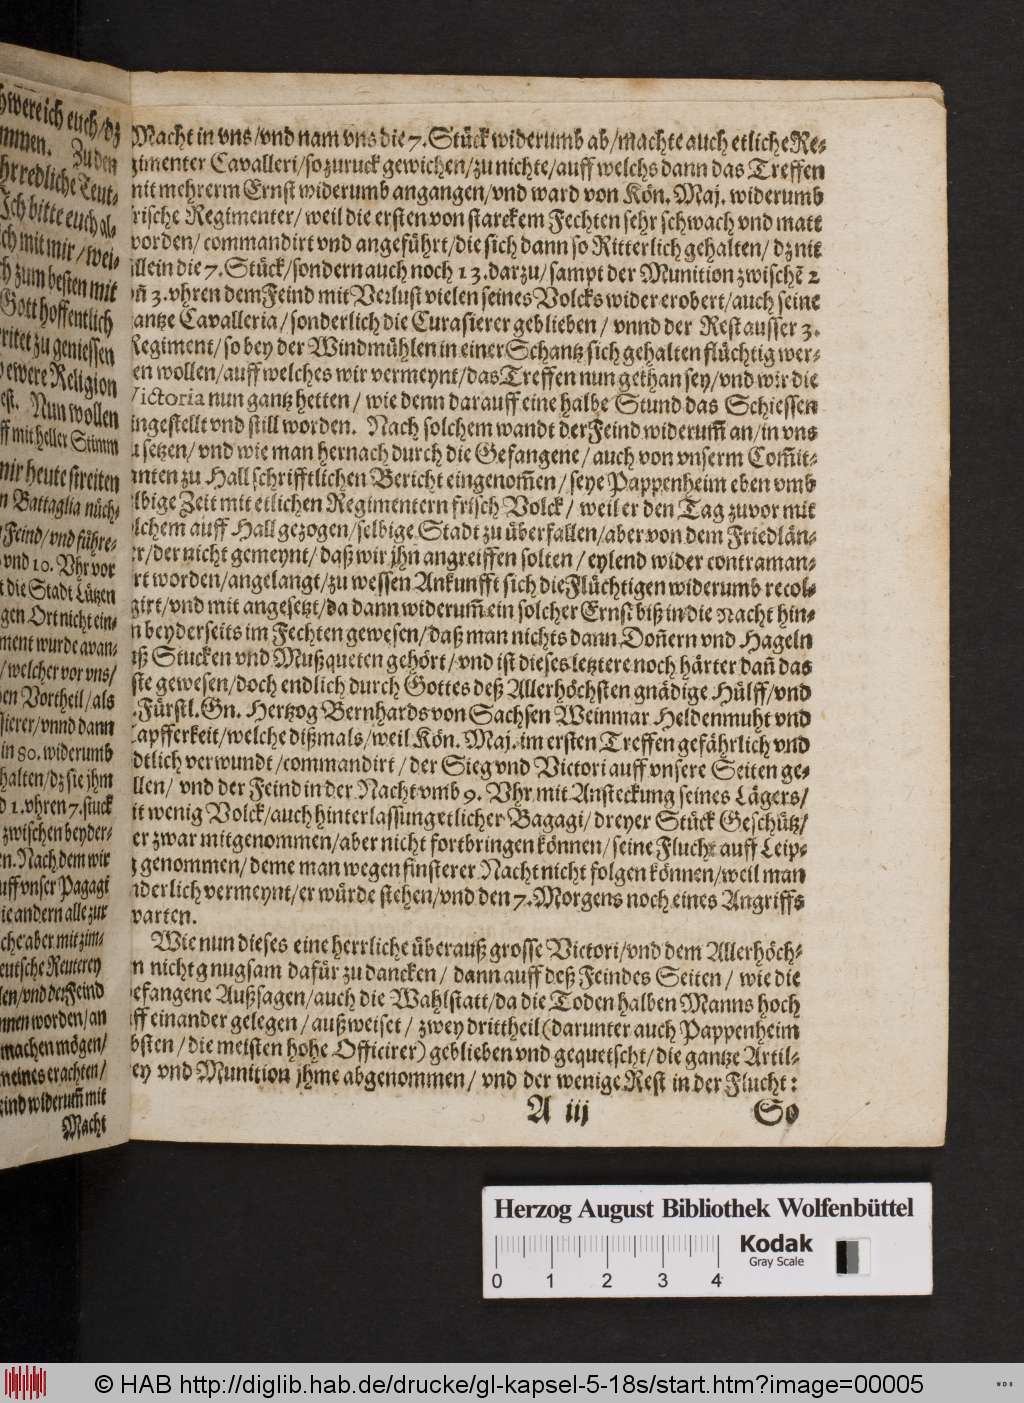 hwere ich euch/dz
mmen. Zu den
hr redliche Teut-
Ich bitte euch al-
ch mit mir / wei-
ch zum besten mit
Gott hoffentlich
ritet zu geniessen
ewere Religion
est. Nun wollen
ff mit heller Stimm
mir heute streiten
n Battaglia nüch-
Feind/vnd führe-
vnd 10. Vhr vor
t die Stadt Lützen
gen Ort nicht ein-
ment wurde avan-
/ welcher vor vns/
en Vortheil/als
sierer/vnnd dann
in 80. widerumb
halten/dz sie jhm
d 1. vhren 7. stuck
zwischen beyder-
n. Nach dem wir
uff vnser Pagagi
ie andern alle zur
che aber mit zim-
eutsche Reuterey
len/vnd der Feind
nnen worden/an
machen mögen/
meines erachten/
eind widerum̄ mit
Macht
Macht in vns/vnd nam vns die 7. Stück widerumb ab/machte auch etliche Re-
gimenter Cavalleri/so zuruck gewichen/zu nichte/auff welchs dann das Treffen
mit mehrerm Ernst widerumb angangen/vnd ward von Kön. Maj. widerumb
frische Regimenter/ weil die ersten von starckem Fechten sehr schwach vnd matt
worden/ commandirt vnd angeführt/die sich dann so Ritterlich gehalten/ dz nit
allein die 7. Stück/sondern auch noch 13. darzu/ sampt der Munition zwischē 2
vn̄ 3. vhren dem Feind mit Verlust vielen seines Volcks wider erobert/auch seine
gantze Cavalleria/sonderlich die Curasierer geblieben/ vnnd der Rest ausser 3.
Regiment/ so bey der Windmühlen in einer Schantz sich gehalten flüchtig wer-
den wollen/auff welches wir vermeynt/das Treffen nun gethan sey/vnd wir die
Victoria nun gantz hetten / wie denn darauff eine halbe Stund das Schiessen
eingestellt vnd still worden. Nach solchem wandt der Feind widerum̄ an/in vns
zu setzen/ vnd wie man hernach durch die Gefangene / auch von vnserm Com̄it-
anten zu Hall schrifftlichen Bericht eingenom̄en/ seye Pappenheim eben vmb
selbige Zeit mit etlichen Regimentern frisch Volck / weil er den Tag zuvor mit
solchem auff Hall gezogen/selbige Stadt zu überfallen/aber von dem Friedlän-
der/der nicht gemeynt/ daß wir jhn angreiffen solten / eylend wider contraman-
dirt worden/angelangt/zu wessen Ankunfft sich die Flüchtigen widerumb recol-
ligirt/vnd mit angesetzt/da dann widerum̄ ein solcher Ernst biß in die Nacht hin-
ein beyderseits im Fechten gewesen/daß man nichts dann Don̄ern vnd Hageln
auß Stucken vnd Mußqueten gehört/vnd ist dieses letztere noch härter dan̄ das
erste gewesen/doch endlich durch Gottes deß Allerhöchsten gnädige Hülff/vnd
J. Fürstl. Gn. Hertzog Bernhards von Sachsen Weinmar Heldenmuht vnd
Tapfferkeit/welche dißmals/weil Kön. Maj. im ersten Treffen gefährlich vnd
tödtlich verwundt/commandirt/der Sieg vnd Victori auff vnsere Seiten ge-
fallen/ vnd der Feind in der Nacht vmb 9. Vhr mit Ansteckung seines Lägers/
mit wenig Volck/auch hinterlassung etlicher Bagagi/dreyer Stück Geschütz/
er zwar mitgenommen/aber nicht fortbringen können/seine Flucht auff Leip-
zig genommen/deme man wegen finsterer Nacht nicht folgen können/weil man
sonderlich vermeynt/er würde stehen/vnd den 7. Morgens noch eines Angriffs
warten.
Wie nun dieses eine herrliche überauß grosse Victori/vnd dem Allerhöch-
sten nicht gnugsam dafür zu dancken/ dann auff deß Feindes Seiten / wie die
Gefangene Außsagen/auch die Wahlstatt/da die Toden halben Manns hoch
auff einander gelegen / außweiset / zwey drittheil (darunter auch Pappenheim
selbsten/die meisten hohe Officirer) geblieben vnd gequetscht/die gantze Artil-
lerey vnd Munition jhme abgenommen/ vnd der wenige Rest in der Flucht:
A iij
So
Herzog August Bibliothek Wolfenbüttel
0 1 2 3 4
Kodak
Gray Scale
© HAB http://diglib.hab.de/drucke/gl-kapsel-5-18s/start.htm?image=00005